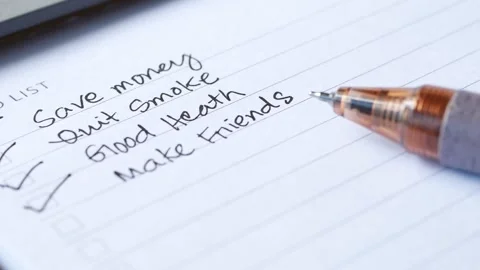 LIST
Save money
Quit Smoke
Good Heath
Make Friends